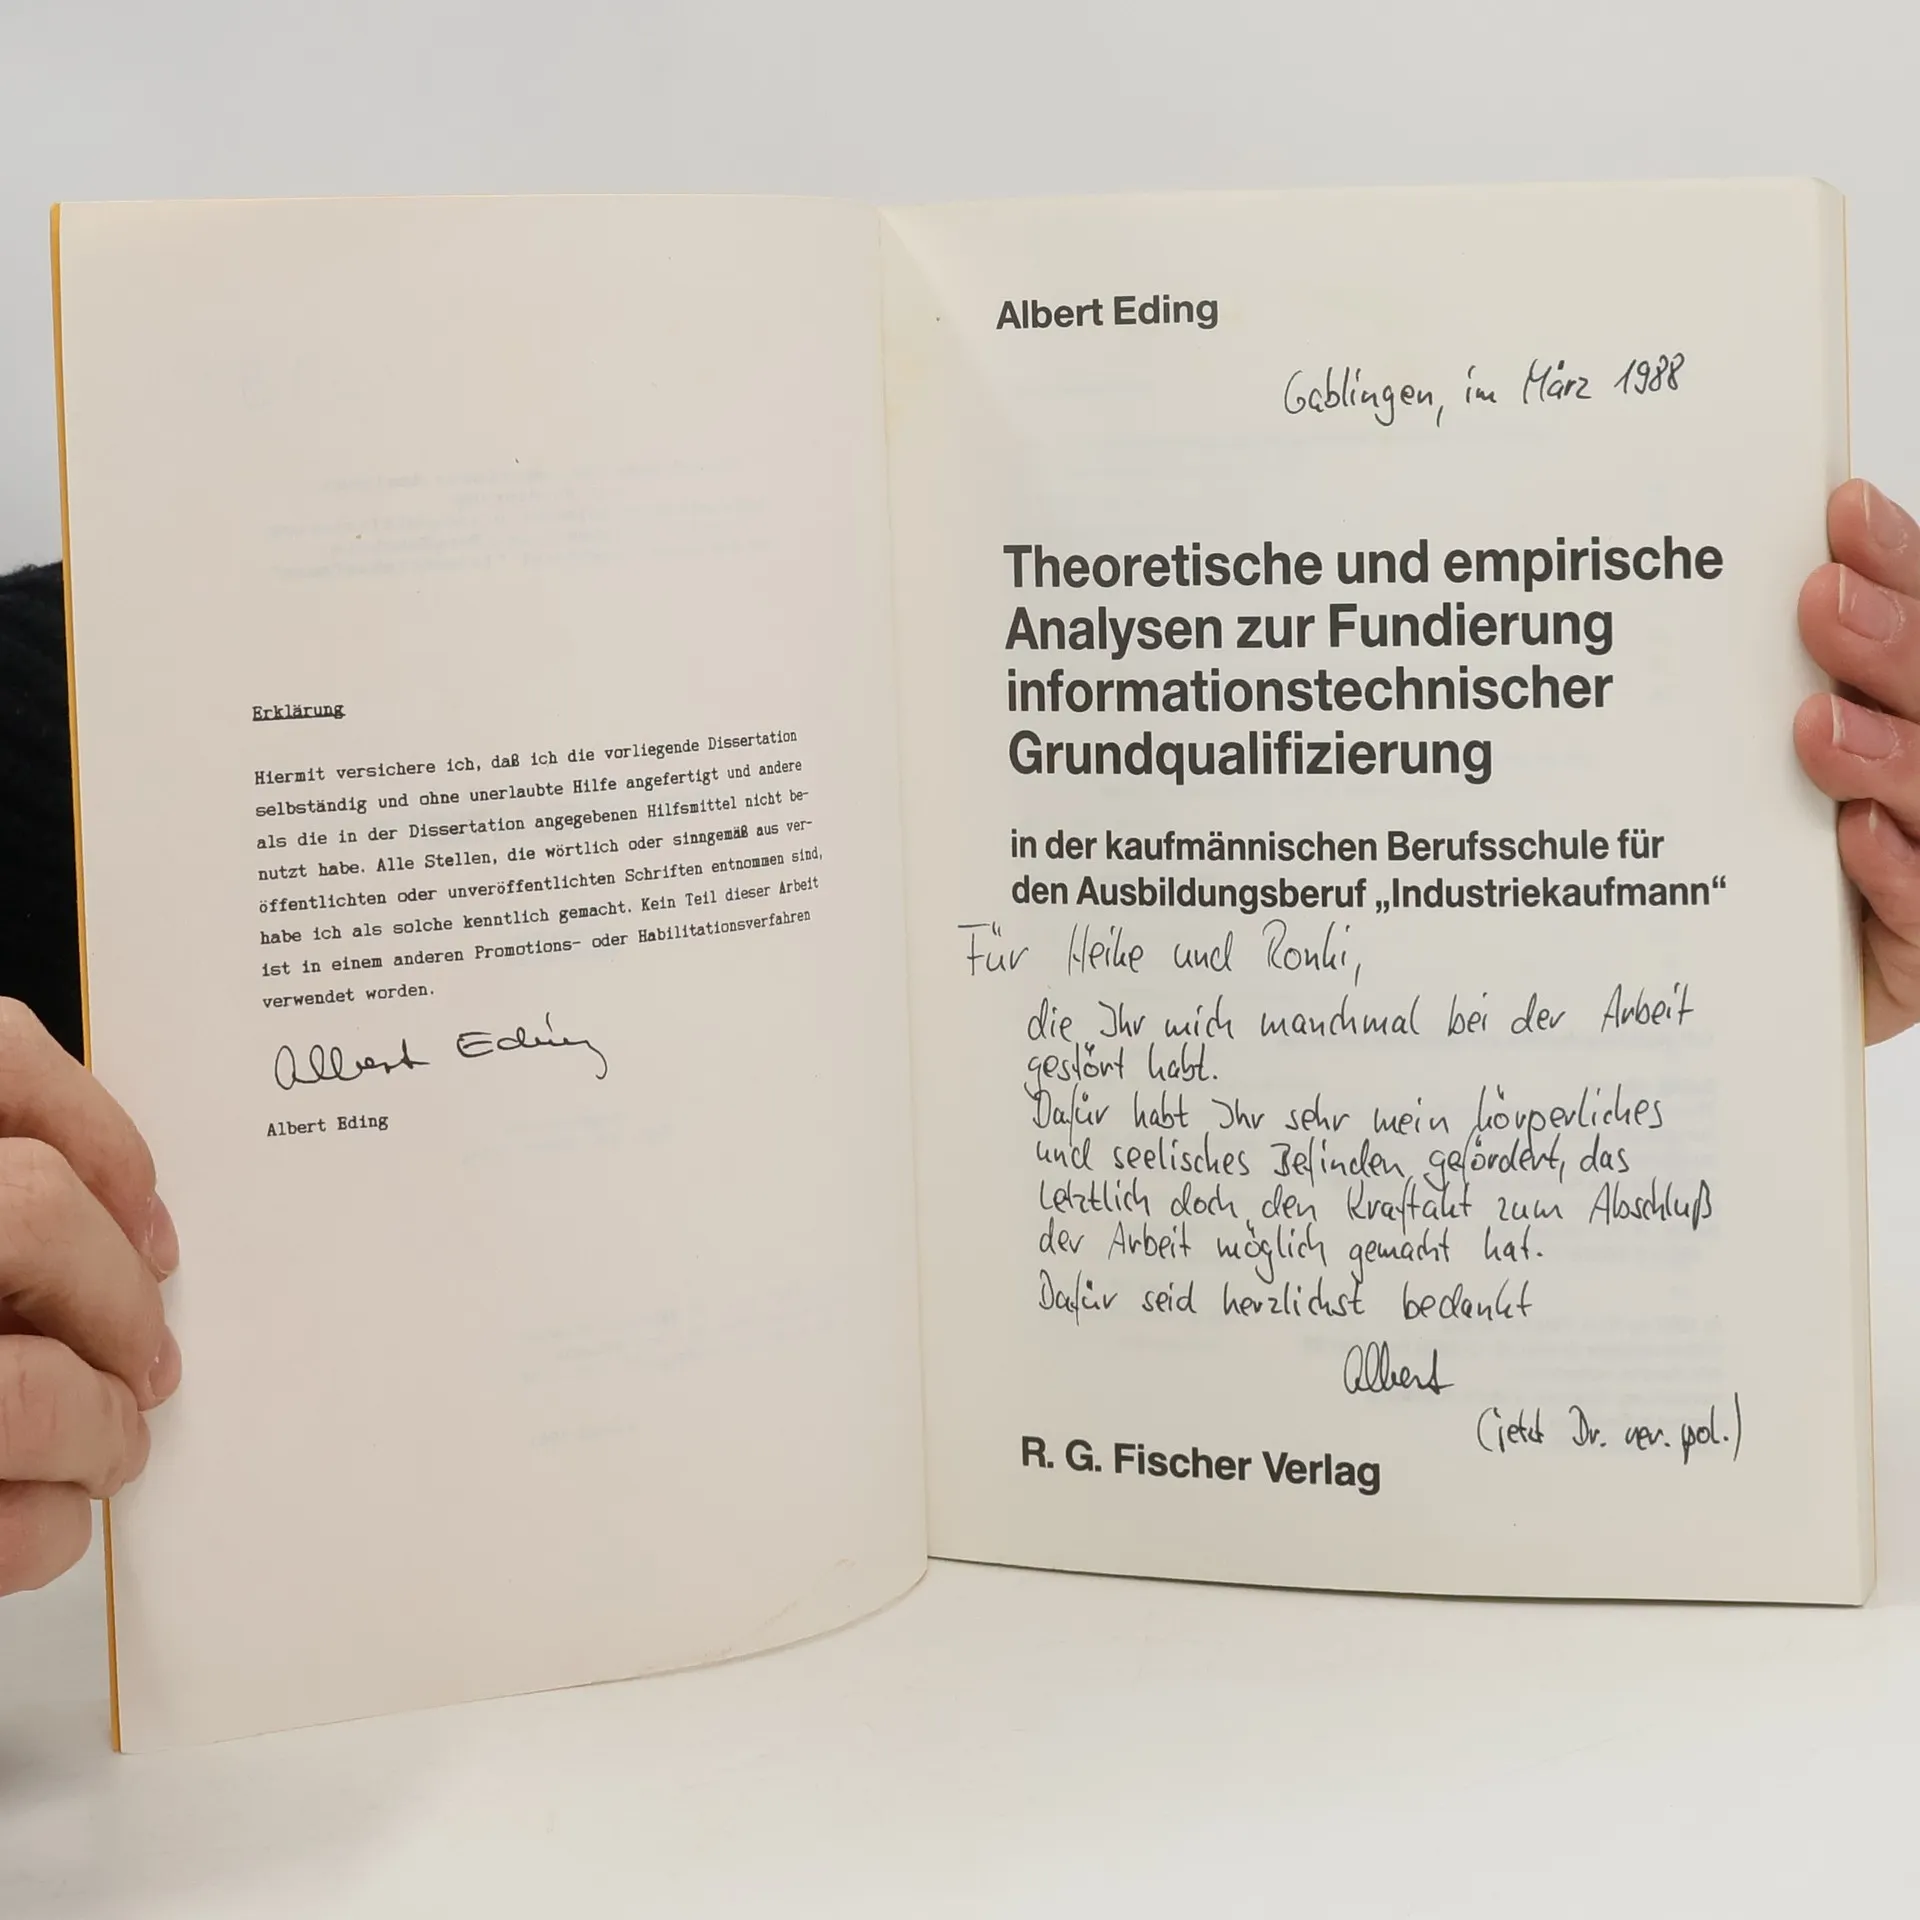 Erklärung
Hiermit versichere ich, daß ich die vorliegende Dissertation
selbständig und ohne unerlaubte Hilfe angefertigt und andere
als die in der Dissertation angegebenen Hilfsmittel nicht be-
nutzt habe. Alle Stellen, die wörtlich oder sinngemäß aus ver-
öffentlichten oder unveröffentlichten Schriften entnommen sind,
habe ich als solche kenntlich gemacht. Kein Teil dieser Arbeit
ist in einem anderen Promotions- oder Habilitationsverfahren
verwendet worden.
Albert Eding
Albert Eding
Albert Eding
Gablingen, im März 1988
Theoretische und empirische
Analysen zur Fundierung
informationstechnischer
Grundqualifizierung
in der kaufmännischen Berufsschule für
den Ausbildungsberuf „Industriekaufmann“
Für Heike und Ronki,
die Ihr mich manchmal bei der Arbeit
gestört habt.
Dafür habt Ihr sehr mein körperliches
und seelisches Befinden gefördert, das
letztlich doch den Kraftakt zum Abschluß
der Arbeit möglich gemacht hat.
Dafür seid herzlichst bedankt
Albert
(jetzt Dr. rer. pol.)
R. G. Fischer Verlag